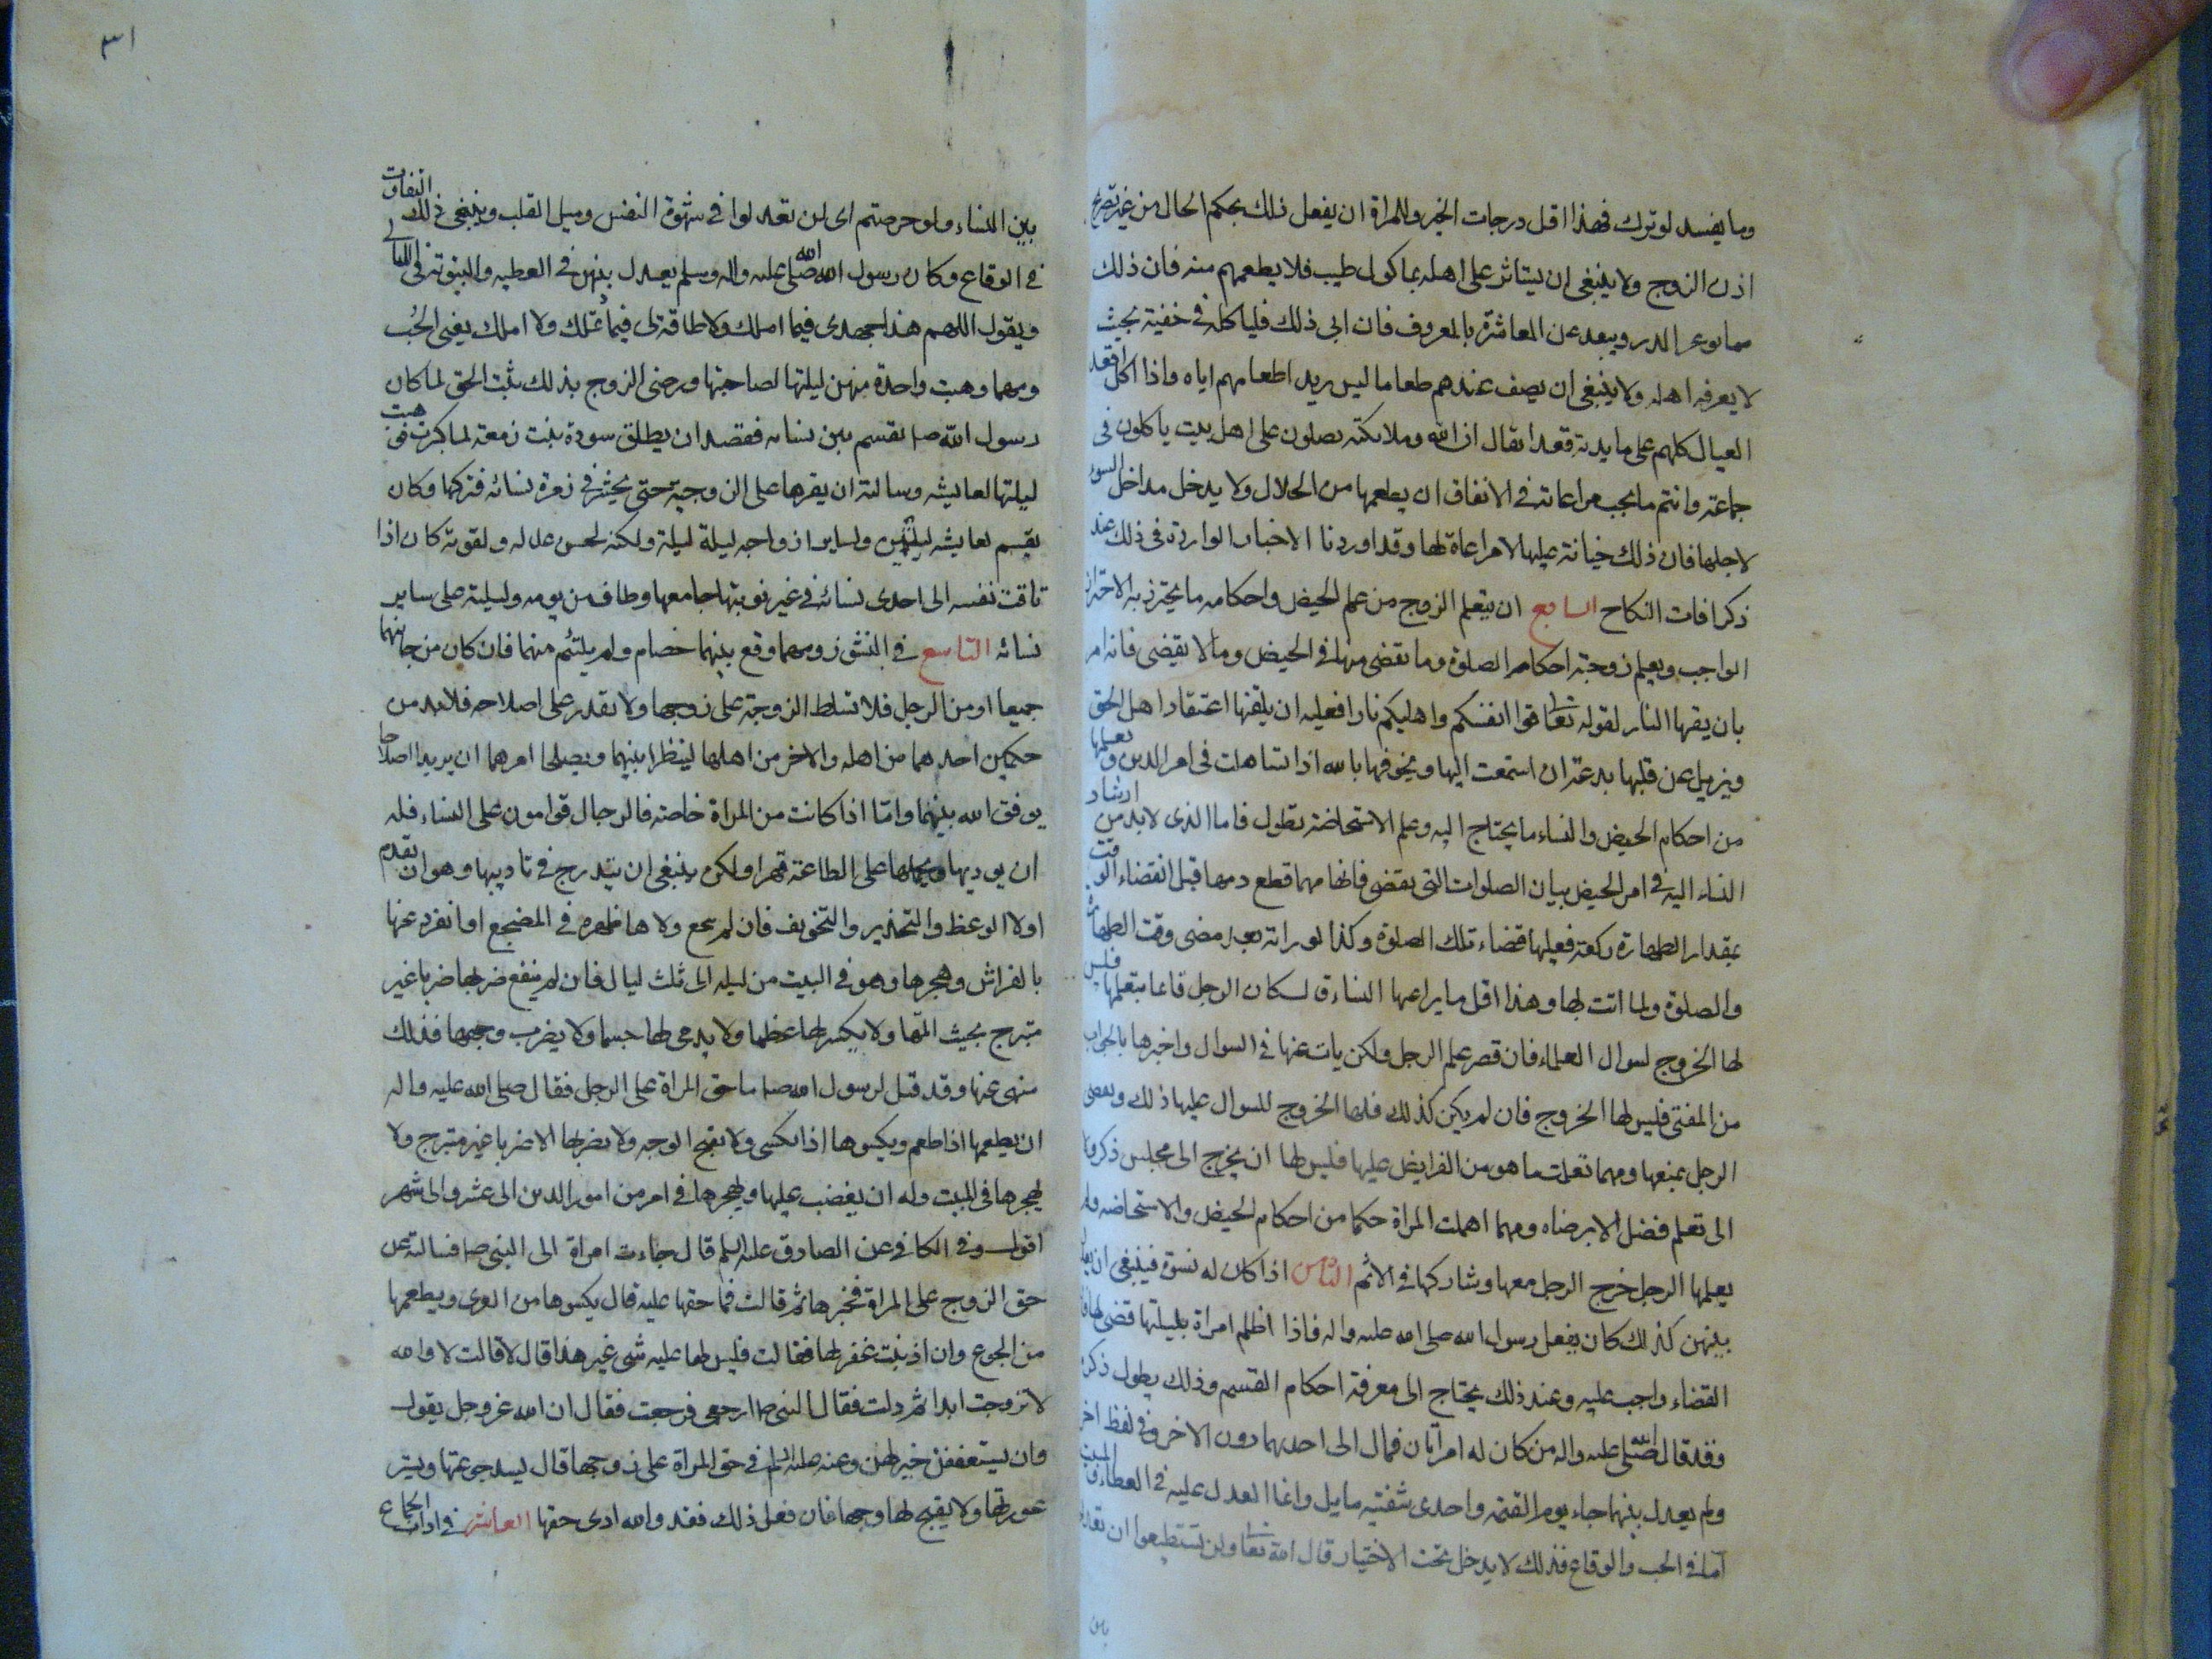 وما يفسد لو ترك فهذا اقل درجات الخير وللمراة ان يفعل ذلك بحكم الحال من غير تصريح
اذن الزوج ولا ينبغى ان يستاثر على اهله بماكول طيب فلا يطعمهم منه فان ذلك
مما يوغر الصدر ويبعد عن المعاشرة بالمعروف فان ابى ذلك فلياكله فى خفية بحيث
لا يعرفه اهله ولا ينبغى ان يصف عندهم طعاما ليس يريد اطعامهم اياه واذا اكل اقعد
العيال كلهم على مايدته فقد يقال ان الله وملائكته يصلون على اهل بيت ياكلون فى
جماعة وانتم ما يجب مراعاته فى الانفاق ان يطعمها من الحلال ولا يدخل مداخل السوء
لاجلها فان ذلك خيانة عليها لا مراعاة لها وقد اوردنا الاخبار الواردة فى ذلك عند
ذكر افات النكاح السابع ان يتعلم الزوج من علم الحيض واحكامه ما يحترز به الاحتراز
الواجب ويعلم زوجته احكام الصلوة وما تقضى منها فى الحيض وما لا يقضى فانه امر
بان يقيها النار لقوله تعالى قوا انفسكم واهليكم نارا فعليه ان يلقنها اعتقاد اهل الحق
ويزيل عن قلبها بدعة ان استمعت اليها ويخوفها بالله اذا تساهلت فى امر الدين ويعلمها
من احكام الحيض والنساء ما يحتاج اليه وعلم الاستحاضة يطول فاما الذى لا بد من ارشاد
النساء اليه فى امر الحيض بيان الصلوات التى يقضى فانها مهما قطع دمها قبل انقضاء الوقت
بمقدار الطهارة ركعة فعليها قضاء تلك الصلوة وكذا لو راته بعد مضى وقت الطهارة
والصلوة ولما اتت بها وهذا اقل ما يراعيها النساء ق لو كان الرجل قائما بتعلمها فليس
لها الخروج لسوال العلماء فان قصر علم الرجل ولكن ياب عنها فى السوال واخبرها بالجواب
من المفتى فليس لها الخروج فان لم يكن كذلك فلها الخروج للسوال عليها ذلك ويعصى
الرجل بمنعها ومهما تعلمت ما هو من الفرايض عليها فليس لها ان يخرج الى مجلس ذكر ولا
الى تعلم فضل الا برضاه ومهما اهملت المراة حكما من احكام الحيض والاستحاضه ولم
يعلمها الرجل خرج الرجل معها وشاركها فى الاثم الثامن اذا كان له نسوة فينبغى ان يعدل
بينهن كذلك كان يفعل رسول الله صلى الله عليه واله فاذا اظلم امراة بليلتها قضى لها فان
القضاء واجب عليه وعند ذلك يحتاج الى معرفة احكام القسم وذلك يطول ذكره
وقد قال صلى الله عليه واله من كان له امراتان فمال الى احديهما دون الاخر وفى لفظ اخر
ولم يعدل بينهما جاء يوم القيمة واحدى شفتيه مايل وانما العدل عليه فى العطاء والمبيت
اما فى الحب والوقاع فذلك لا يدخل تحت الاختيار قال الله تعالى ولن تستطيعوا ان تعدلوا
بين
٣١
بين النساء ولو حرصتم اى لن تعدلوا فى شهوة النفس وميل القلب وينبغى ذلك التفاوت
فى الوقاع وكان رسول الله صلى الله عليه واله وسلم يعدل بينهن فى العطيه والبيتوتة فى الليالى
ويقول اللهم هذا جهدى فيما املك ولا طاقة لى فيما تملك ولا املك يعنى الحب
ومهما وهبت واحدة منهن ليلتها لصاحبتها ورضى الزوج بذلك ثبت الحق لها كان
رسول الله ص يقسم بين نسائه فقصد ان يطلق سودة بنت زمعة لما كبرت فوهبت
ليلتها لعايشه وسالته ان يقرها على الزوجية حتى يحشر فى زمرة نسائه فتركها وكان
يقسم لعايشه ليلتين ولساير ازواجه ليلة ليلة ولكنه لحسن عدله ولقوته كان اذا
تاقت نفسه الى احدى نسائه فى غير نوبتها جامعها وطاف من يومه وليلته على ساير
نسائه التاسع فى النشوز ومهما وقع بينهما خصام ولم يلتئم منهما فان كان من جانبهما
جميعا او من الرجل فلا تسلط الزوجة على زوجها ولا يقدر على اصلاحه فلابد من
حكمين احدهما من اهله والاخر من اهلها لينظرا بينهما ويصلحا امرهما ان يريدا اصلاحا
يوفق الله بينهما واما اذا كانت من المراة خاصة فالرجال قوامون على النساء فله
ان يوديها ويحملها على الطاعة قهرا ولكن ينبغى ان يتدرج فى تاديبها وهو ان يقدم
اولا الوعظ والتحذير والتخويف فان لم ينجع ولاها ظهره فى المضجع او انفرد عنها
بالفراش وهجرها وهو فى البيت من ليله الى ثلث ليال فان لم ينفع ضربها ضربا غير
مبرح بحيث المها ولا يكسر لها عظما ولا يدمى لها جسما ولا يضرب وجهها فذلك
منهى عنها وقد قيل لرسول الله ص ما حق المراة على الرجل فقال صلى الله عليه واله
ان يطعمها اذا طعم ويكسوها اذا يكسى ولا يقبح الوجه ولا يضربها الا ضربا غير مبرح ولا
يهجرها فى المبيت وله ان يغضب عليها ويهجرها فى امر من امور الدين الى عشر والى شهر
اقول وفى الكافى عن الصادق عليه السلم قال جاءت امراة الى النبى ص فسالته عن
حق الزوج على المراة فخبرها ثم قالت فما حقها عليه قال يكسوها من العرى ويطعمها
من الجوع وان اذنبت غفر لها فقالت فليس لها عليه شى غير هذا قال لا قالت لا والله
لا تزوجت ابدا ثم ولت فقال النبى ص ارجعى فرجعت فقال ان الله عز وجل يقول
وان يستعففن خير لهن وعنه عليه السلم فى حق المراة على زوجها قال يسد جوعتها ويستر
عورتها ولا يقبح لها وجها فان فعل ذلك فقد والله ادى حقها العاشر فى اداب الجماع